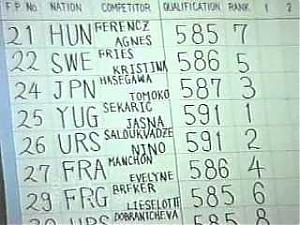 F.P. No. NATION COMPETITOR QUALIFICATION RANK 1 2
21 HUN FERENCZ AGNES 585 7
22 SWE FRIES KRISTINA 586 5
24 JPN HASEGAWA TOMOKO 587 3
25 YUG SEKARIC JASNA 591 1
26 URS SALOUKVADZE NINO 591 2
27 FRA MANCHON EVELYNE 586 4
29 FRG BREKER LIESELOTTE 585 6
30 URS DOBRANTCHEVA 585 8